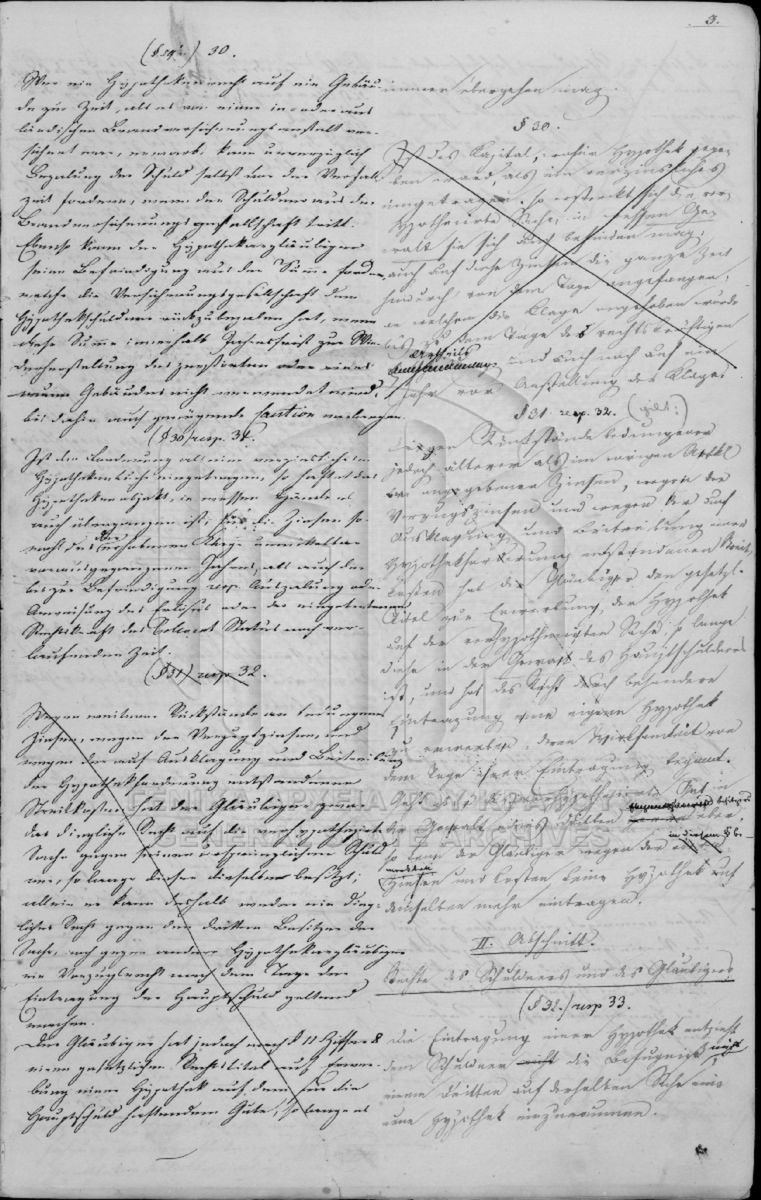 3.
(§ 29.) 30.
Wer ein Hypothekenrecht auf ein Gebäu-
de zur Zeit, als es von einer in oder aus-
ländischen Brandversicherungsanstalt ver-
sichert war, erwarb, kann unverzüglich
Bezalung der Schuld selbst vor der Verfall-
zeit fordern, wenn der Schuldner aus der
Brandversicherungsgesellschaft tritt.
Ebenso kann der Hypothekargläubiger
seine Befriedigung aus der Summe fordern,
welche die Versicherungsgesellschaft dem
Hypothekschuldner auszubezalen hat, wenn
diese Summe innerhalb Jahresfrist zur Wie-
derherstellung des zerstörten oder eines
neuen Gebäudes nicht verwendet wird,
bis dahin auch genügende Caution
(§ 30) resp. 31.
Ist die Forderung als eine verzinsliche im
Hypothekenbuche eingetragen, so haftet das
Hypothekenobjekt, in wessen Hände es
auch übergegangen ist, für die Zinsen so-
wohl des der erhobenen Klage unmittelbar
vorausgegangenen Jahres, als auch der
bis zur Befriedigung resp. Auszalung oder
Anweisung des oder der eingetretenen
Rechtskraft des Status noch ver-
laufenden Zeit.
(§ 31) resp. 32.
Wegen weiterer Rückstände an bedungenen
Zinsen, wegen der Verzugszinsen, und
wegen der auf Ausklagung und Beitreibung
der Hypothekforderung entstandenen
Streitkosten hat der Gläubiger zwar
das dingliche Recht auf die verhypothezirte
Sache gegen seinen ursprünglichen Schuld-
ner, so lange dieser dieselbe besitzt;
allein er kann deshalb weder ein ding-
liches Recht gegen den dritten Besitzer der
Sache, noch gegen andere Hypothekargläubiger
ein Vorzugsrecht nach dem Tage der
Eintragung der Hauptschuld geltend
machen.
Der Gläubiger hat jedoch nach § 11 Ziffer 8
einen gesetzlichen Rechtstitel auf Erwer-
bung einer Hypothek auf dem für die
Hauptschuld haftenden Gute, so lange es
immer übergehen mag.
§ 30.
Ist das Kapital, wofür Hypothek gege-
ben ward, als ein verzinsliches
eingetragen, so erstreckt sich die ver-
hypothezirte Sache, in wessen Ge-
walt sie sich auch befinden mag,
auch auf diese Zinsen die ganze Zeit
hindurch, von dem Tage angefangen,
an welchem die Klage angehoben wurde
bis zu dem Tage des rechtskräftigen
Urtheils
und auch noch auf ein
Jahr vor Anstellung der Klage.
§ 31 resp. 32. (gilt:)
Wegen Rückstände bedungener
jedoch älterer als im vorigen Artikel
angegebener Zinsen, wegen der
Verzugszinsen und wegen der auf
Ausklagung und Beitreibung einer
Hypothekforderung entstandenen Streit-
kosten hat der Gläubiger den gesetzl.
Titel zur Erwerbung der Hypothek
auf der verhypothezirten Sache, so lange
diese in der Gewalt des Hauptschuldners
ist, und hat das Recht durch besondere
Eintragung eine eigene Hypothek
zu erwerben, deren Wirksamkeit von
dem Tage ihrer Eintragung beginnt.
der Gewalt eines dritten
in diesem § be-
so kann der Gläubiger wegen der
Zinsen und Kosten keine Hypothek auf
denselben mehr eintragen.
II. Abschnitt.
Rechte des Schuldners und des Gläubigers
(§ 32.) resp 33.
Die Eintragung einer Hypothek entzieht
dem Schuldner nicht die Befugniß nicht
einem Dritten auf derselben Sache eine
neue Hypothek einzuräumen.
ΓΕΝΙΚΑ ΑΡΧΕΙΑ ΤΟΥ ΚΡΑΤΟΥΣ
GENERAL STATE ARCHIVES